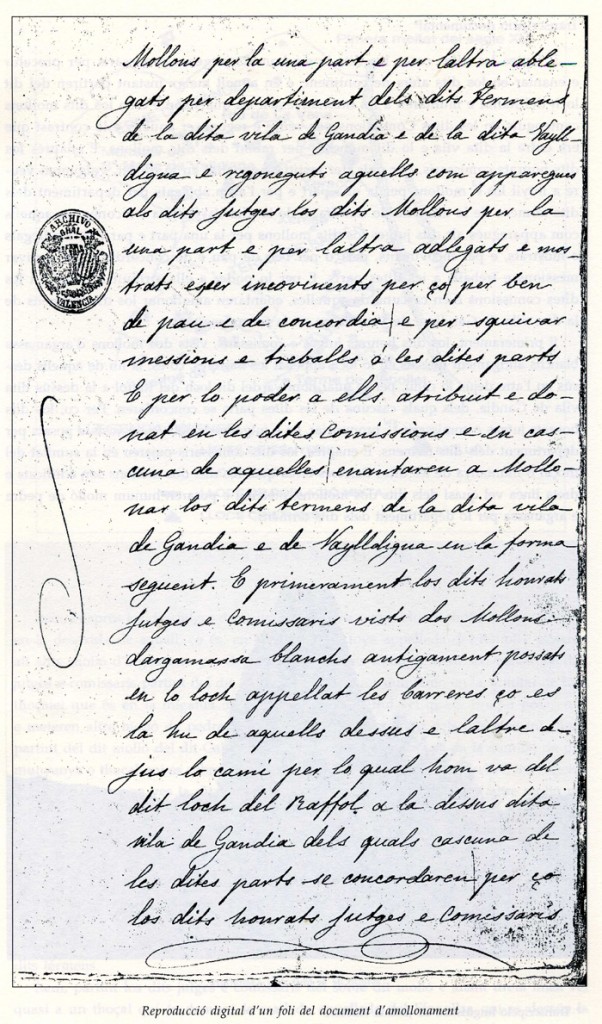 Mollons per la una part e per laltra able-
gats per departiment dels dits termens
de la dita vila de Gandia e de la dita Vayll
digna e regoneguts aquells com apparegues
als dits Jutges los dits Mollons per la
una part e per laltra adlegats e mos-
trats esser incovinents per ço per ben
de pau e de concordia e per squivar
messions e treballs a les dites parts
E per lo poder a ells atribuit e do-
nat en les dites Comissions e en cas-
cuna de aquelles enantaren a Mollo-
nar los dits termens de la dita vila
de Gandia e de Vaylldigna en la forma
seguent. E primerament los dits honrats
Jutges e Comissaris vists dos Mollons
dargamassa blanchs antigament possats
en lo loch appellat les Carreres ço es
la hu de aquells dessus e laltre de-
jus lo cami per lo qual hom va del
dit loch del Raffol a la dessus dita
vila de Gandia dels quals cascuna de
les dites parts se concordaren per ço
los dits honrats Jutges e Comissaris
ARCHIVO GRAL
VALENCIA
Reproducció digital d'un foli del document d'amollonament